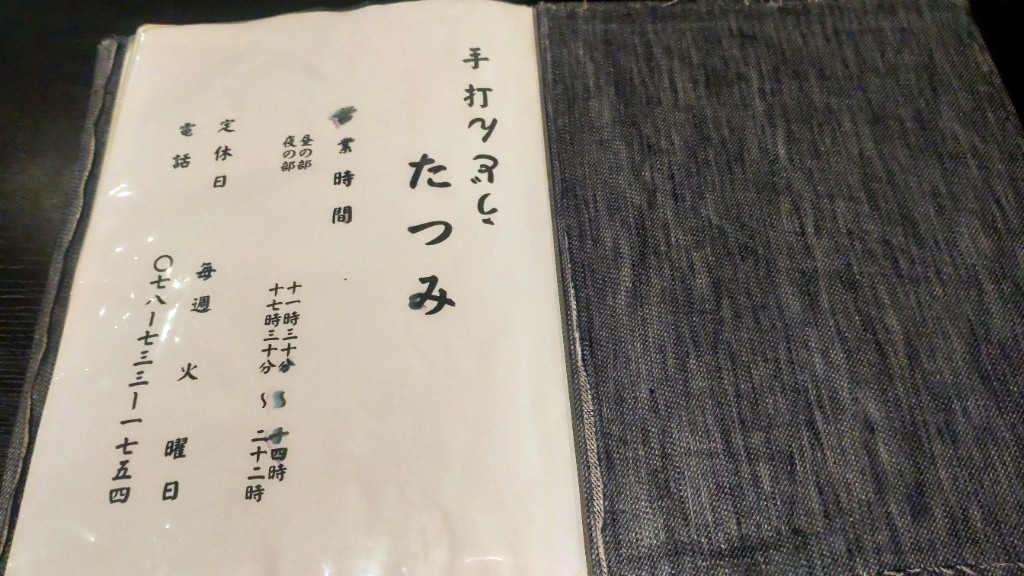 手打
たつみ
業時間
昼の部 十一時三十分 〜 十四時
夜の部 十七時三十分 〜 二十二時
定休日 毎週火曜日
電話 〇七八ー七三三ー一七五四